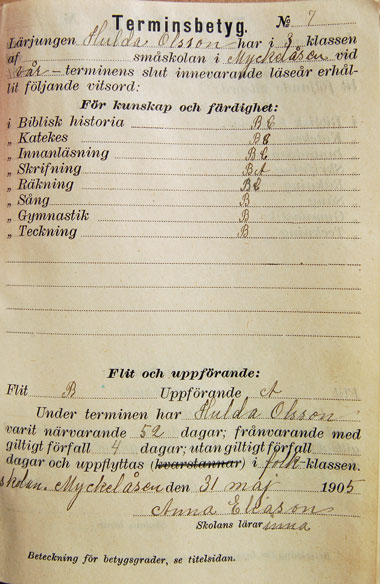 Terminsbetyg. № 7
Lärjungen Hulda Olsson har i 3 klassen
af småskolan i Myckelåsen vid
vår-terminens slut innevarande läseår erhål-
lit följande vitsord:
För kunskap och färdighet:
i Biblisk historia BC
„ Katekes BC
„ Innanläsning BC
„ Skrifning BA
„ Räkning BC
„ Sång B
„ Gymnastik B
„ Teckning B
Flit och uppförande:
Flit B Uppförande A
Under terminen har Hulda Olsson
varit närvarande 52 dagar; frånvarande med
giltigt förfall 4 dagar; utan giltigt förfall
dagar och uppflyttas (kvarstannar) i folk-klassen.
skolan. Myckelåsen den 31 maj 1905
Anna Eliason
Skolans lärarinna
Beteckning för betygsgrader, se titelsidan.